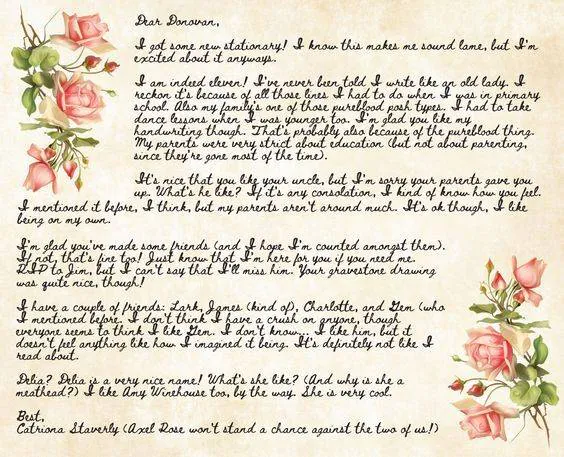 Dear Donovan,
I got some new stationary! I know this makes me sound lame, but I'm
excited about it anyways.
I am indeed eleven! I've never been told I write like an old lady. I
reckon it's because of all those lines I had to do when I was in primary
school. Also my family's one of those pureblood posh types. I had to take
dance lessons when I was younger too. I'm glad you like my
handwriting though. That's probably also because of the pureblood thing.
My parents were very strict about education (but not about parenting,
since they're gone most of the time).
It's nice that you like your uncle, but I'm sorry your parents gave you
up. What's he like? If it's any consolation, I kind of know how you feel.
I mentioned it before, I think, but my parents aren't around much. It's ok though, I like
being on my own.
I'm glad you've made some friends (and I hope I'm counted amongst them).
If not, that's fine too! Just know that I'm here for you if you need me.
RIP to Jim, but I can't say that I'll miss him. Your gravestone drawing
was quite nice, though!
I have a couple of friends: Lark, James (kind of), Charlotte, and Gem (who
I mentioned before. I don't think I have a crush on anyone, though
everyone seems to think I like Gem. I don't know... I like him, but it
doesn't feel anything like how I imagined it being. It's definitely not like I
read about.
Delia? Delia is a very nice name! What's she like? (And why is she a
meathead?) I like Amy Winehouse too, by the way. She is very cool.
Best,
Catriona Staverly (Axel Rose won't stand a chance against the two of us!)